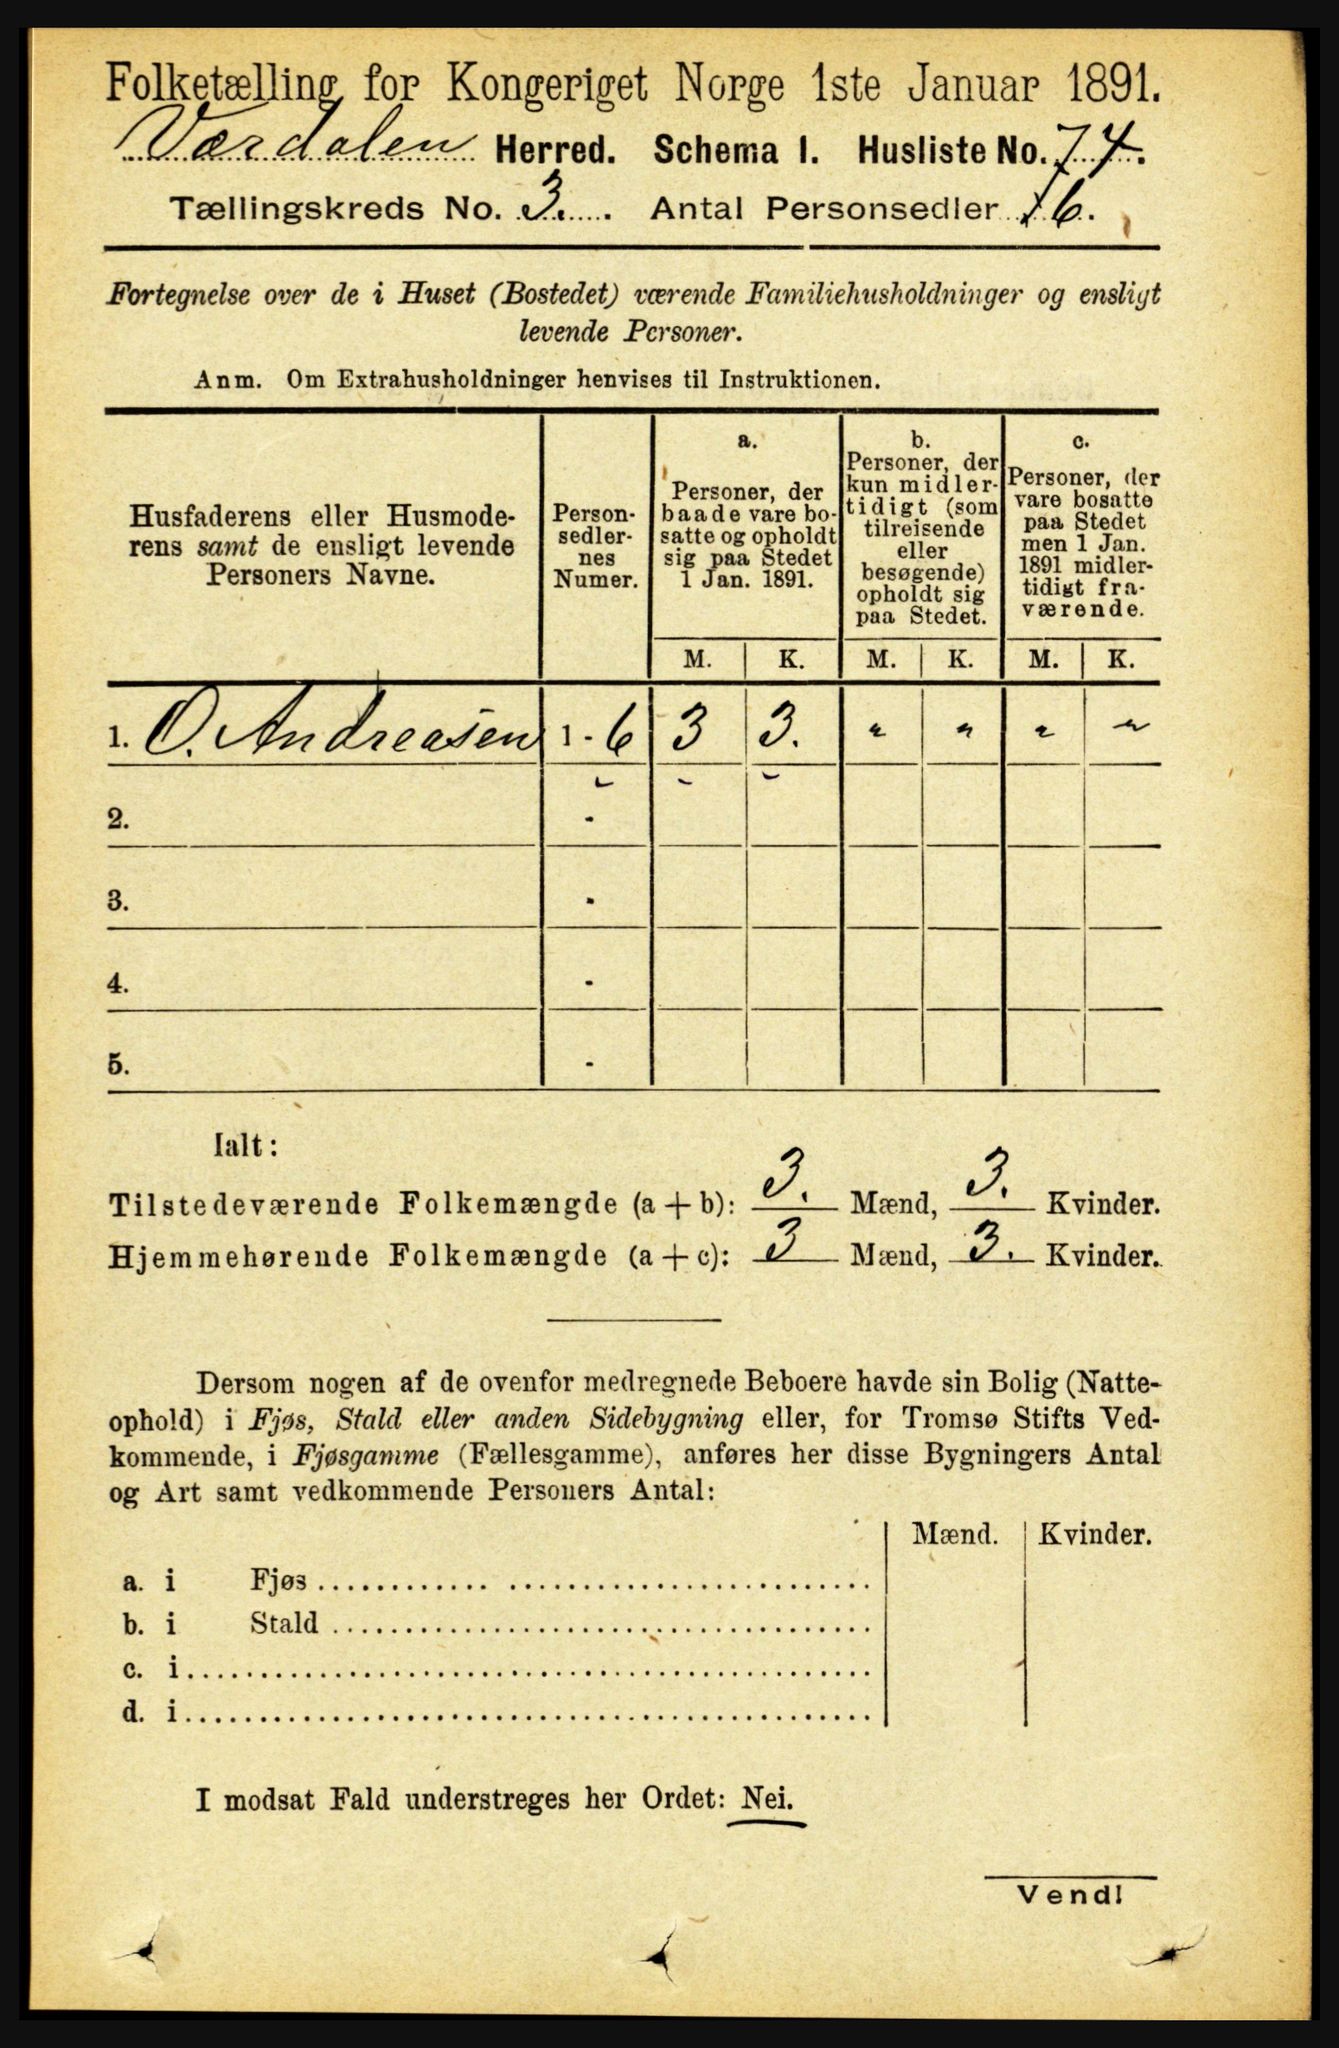 Folketælling for Kongeriget Norge 1ste Januar 1891.
Værdalen Herred. Schema I. Husliste No. 74.
Tællingskreds No. 3. Antal Personsedler 6.
Fortegnelse over de i Huset (Bostedet) værende Familiehusholdninger og ensligt
levende Personer.
Anm. Om Extrahusholdninger henvises til Instruktionen.
Husfaderens eller Husmode-
rens samt de ensligt levende
Personers Navne.
Person-
sedler-
nes
Numer.
a.
Personer, der
baade vare bo-
satte og opholdt
sig paa Stedet
1 Jan. 1891.
b.
Personer, der
kun midler-
tidigt (som
tilreisende
eller
besøgende)
opholdt sig
paa Stedet.
c.
Personer, der
vare bosatte
paa Stedet
men 1 Jan.
1891 midler-
tidigt fra-
værende.
M. K. M. K. M. K.
1. O. Andreasen 1 - 6 3 3. " " " "
2. -
3. -
4. -
5. -
Ialt:
Tilstedeværende Folkemængde (a + b): 3. Mænd, 3. Kvinder.
Hjemmehørende Folkemængde (a + c): 3 Mænd, 3. Kvinder.
Dersom nogen af de ovenfor medregnede Beboere havde sin Bolig (Natte-
ophold) i Fjøs, Stald eller anden Sidebygning eller, for Tromsø Stifts Ved-
kommende, i Fjøsgamme (Fællesgamme), anføres her disse Bygningers Antal
og Art samt vedkommende Personers Antal:
Mænd. Kvinder.
a. i Fjøs
b. i Stald
c. i
d. i
I modsat Fald understreges her Ordet: Nei.
Vend!